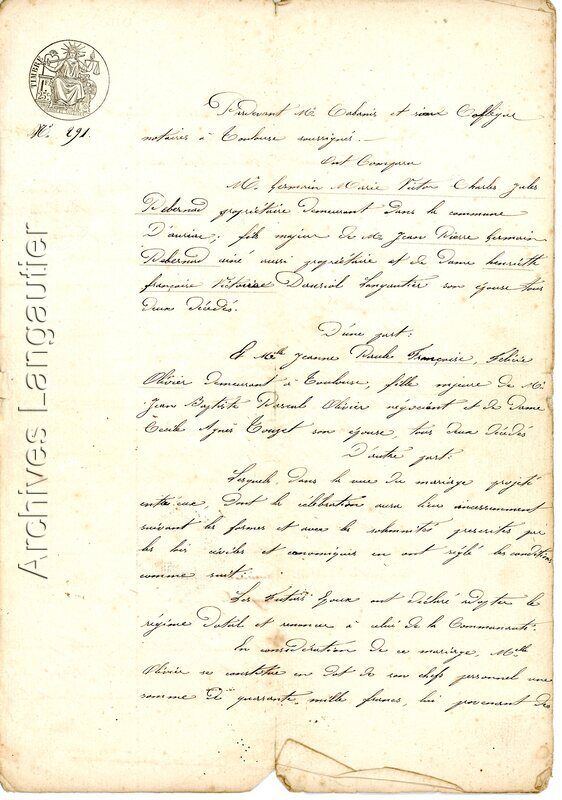 TIMBRE
N° 291.
Archives Langautier
Pardevant Me Cabanis et son Collègue
notaires à Toulouse soussignés. —
Ont Comparu
M. Germain Marie Victor Charles Jules
Debernad propriétaire demeurant dans la commune
D'auriac; fils majeur de M. Jean Pierre Germain
Debernad ainé aussi propriétaire et de Dame henriette
françoise Victoire Dauriol Langautier son épouse tous
deux décédés.
D'une part:
Et Melle Jeanne Paule Françoise, Felicie
Olivier demeurant à Toulouse, fille majeure de M.
Jean Baptiste Pascal Olivier négociant et de Dame
Cecile Agnès Touzet son épouse, tous deux décédés
D'autre part:
Lesquels, dans la vue du mariage projeté
entre eux dont la célébration aura lieu incessamment
suivant les formes et avec les solennités prescrites par
les lois civiles et canoniques en ont réglé les conditions
comme suit:
Les Futurs Epoux ont déclaré adopter le
régime Dotal et renoncer à celui de la Communauté.
En considération de ce mariage, Melle
Olivier se constitue en dot de son chef personnel une
somme de quarante mille francs, lui provenant des